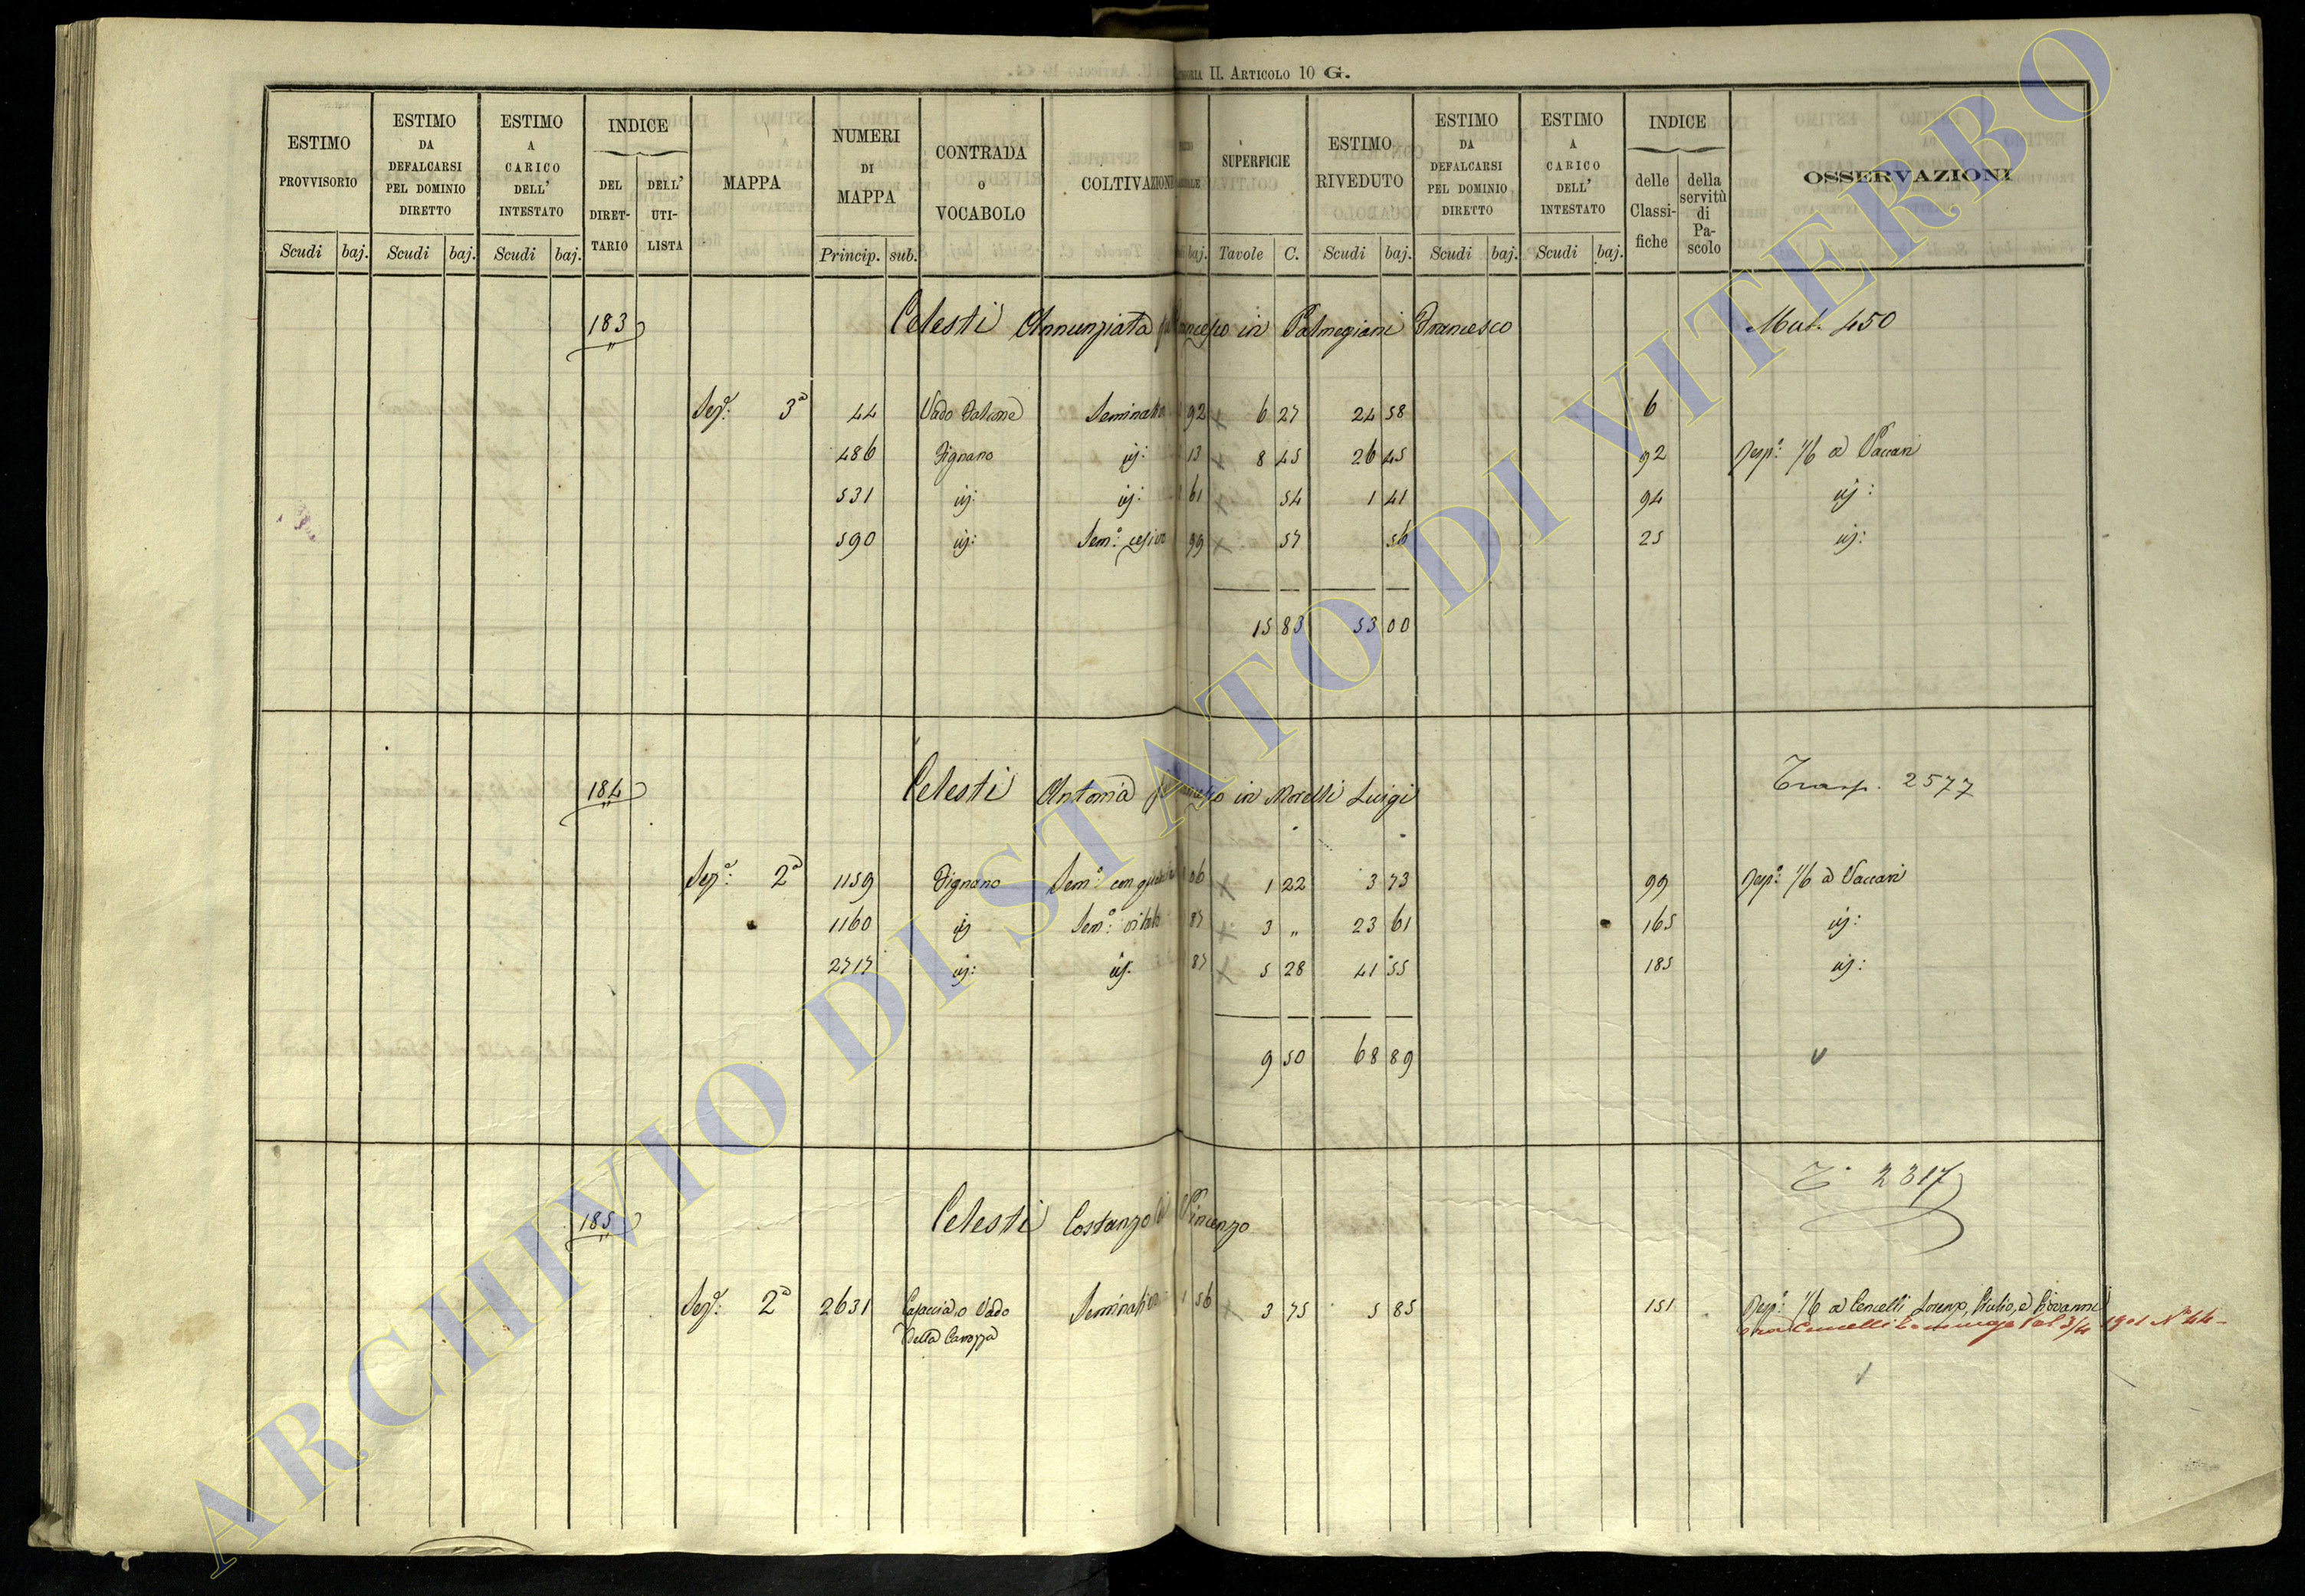 II. Articolo 10 G.
ESTIMO PROVVISORIO
ESTIMO DA DEFALCARSI PEL DOMINIO DIRETTO
ESTIMO A CARICO DELL' INTESTATO
INDICE
DEL DIRET-TARIO
DELL' UTI-LISTA
MAPPA
NUMERI DI MAPPA
CONTRADA o VOCABOLO
COLTIVAZIONE
SUPERFICIE
ESTIMO RIVEDUTO
ESTIMO DA DEFALCARSI PEL DOMINIO DIRETTO
ESTIMO A CARICO DELL' INTESTATO
INDICE
delle Classi-fiche
della servitù di Pa-scolo
OSSERVAZIONI
Scudi baj. Scudi baj. Scudi baj. Princip. sub. baj. Tavole C. Scudi baj. Scudi baj. Scudi baj.
183 Celesti Annunziata in Palmegiani Francesco Mut. 450
Sez.e 3a 44 Vado 92 6 27 24 58 6
486 Fignano id: 13 8 45 26 45 92 1/6 a Vaccari
531 id: id: 61 54 1 41 94 id:
590 id: Sem.o 99 57 56 25 id:
15 83 53 00
184 Celesti Antonia in Morelli Luigi Trasp. 2577
Sez.e 2a 1159 Fignano Sem.o con 06 1 22 3 73 99 1/6 a Vaccari
1160 id Sem.o 87 3 „ 23 61 165 id:
2717 id: id. 87 5 28 41 55 185 id:
9 50 68 89
185 Celesti Costanzo Vincenzo T. 2317
Sez.e 2a 2631 o Vado 56 3 75 5 85 151 1/6 a Cencelli Lorenzo, Giulio, e Giovanni
Della Carozza 3/4 1901 N 44
ARCHIVIO DI STATO DI VITERBO